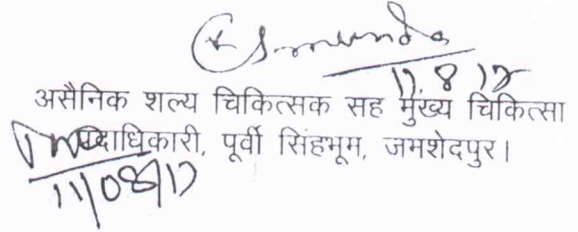 11.8.17
असैनिक शल्य चिकित्सक सह मुख्य चिकित्सा
पदाधिकारी, पूर्वी सिंहभूम, जमशेदपुर।
11/08/17